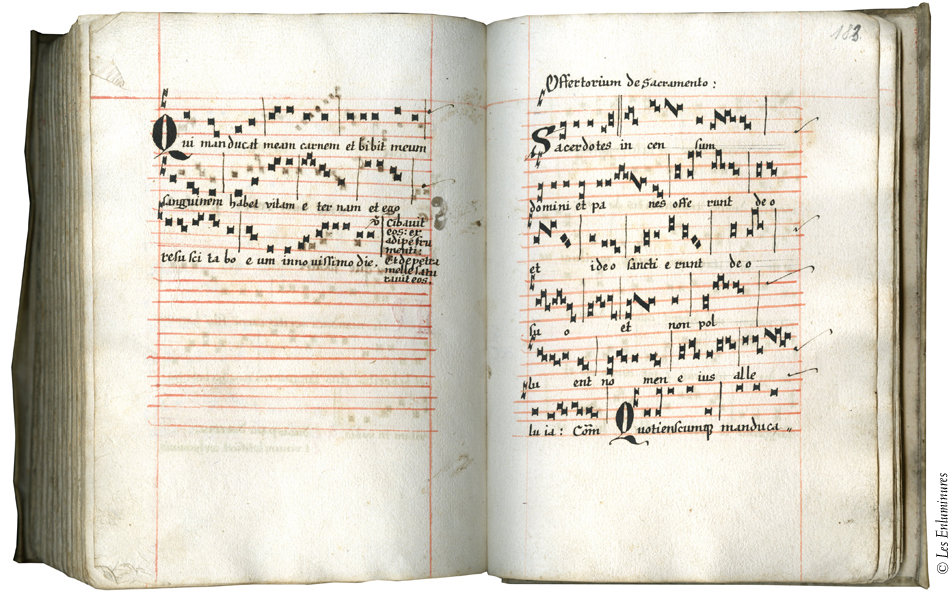 Qui manducat meam carnem et bibit meum
sanguinem habet vitam e ter nam et ego
resusci ta bo e um in no vissimo die.
Cibavit
eos: ex
adipe fru
menti:
Et de petra
melle satu
ravit eos.
183
Offertorium de Sacramento:
Sacerdotes in cen sum
domini et pa nes offe runt de o
et ide o sancti e runt de o
su o et non pol
lu ent no men e ius alle
lu ia: Com̄ Quotienscumq manduca
© Les Enluminures